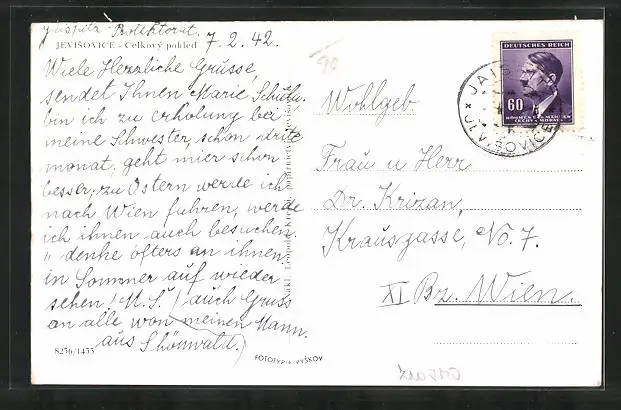 Protektorat.
JEVIŠOVICE - Celkový pohled
7.2.42.
Wiele Herzliche Grüsse,
sendet Ihnen Marie Schulu.
bin ich zu erholung bei
meine Schwester, schon drite
monat, geht mier schon
besser, zu Ostern werde ich
nach Wien fuhren, werde
ich ihnen auch besuchen.
" denke öfters an ihnen
in Sommer auf wieder
sehen! M.S.) auch Gruss
an alle won meinen Mann.
aus Schönwald.)
8256/1453
FOTOTYPIA-VYŠKOV
Nákl. Leopold papírnictví Jevišovice
90
DEUTSCHES REICH
60
BÖHMEN U. MÄHREN
ČECHY A MORAVA
JAIS
JEVIŠOVICE
Wohlgeb.
Frau u Herr
Dr. Krizan,
Krausgasse, No. 7.
XI Bz. Wien.